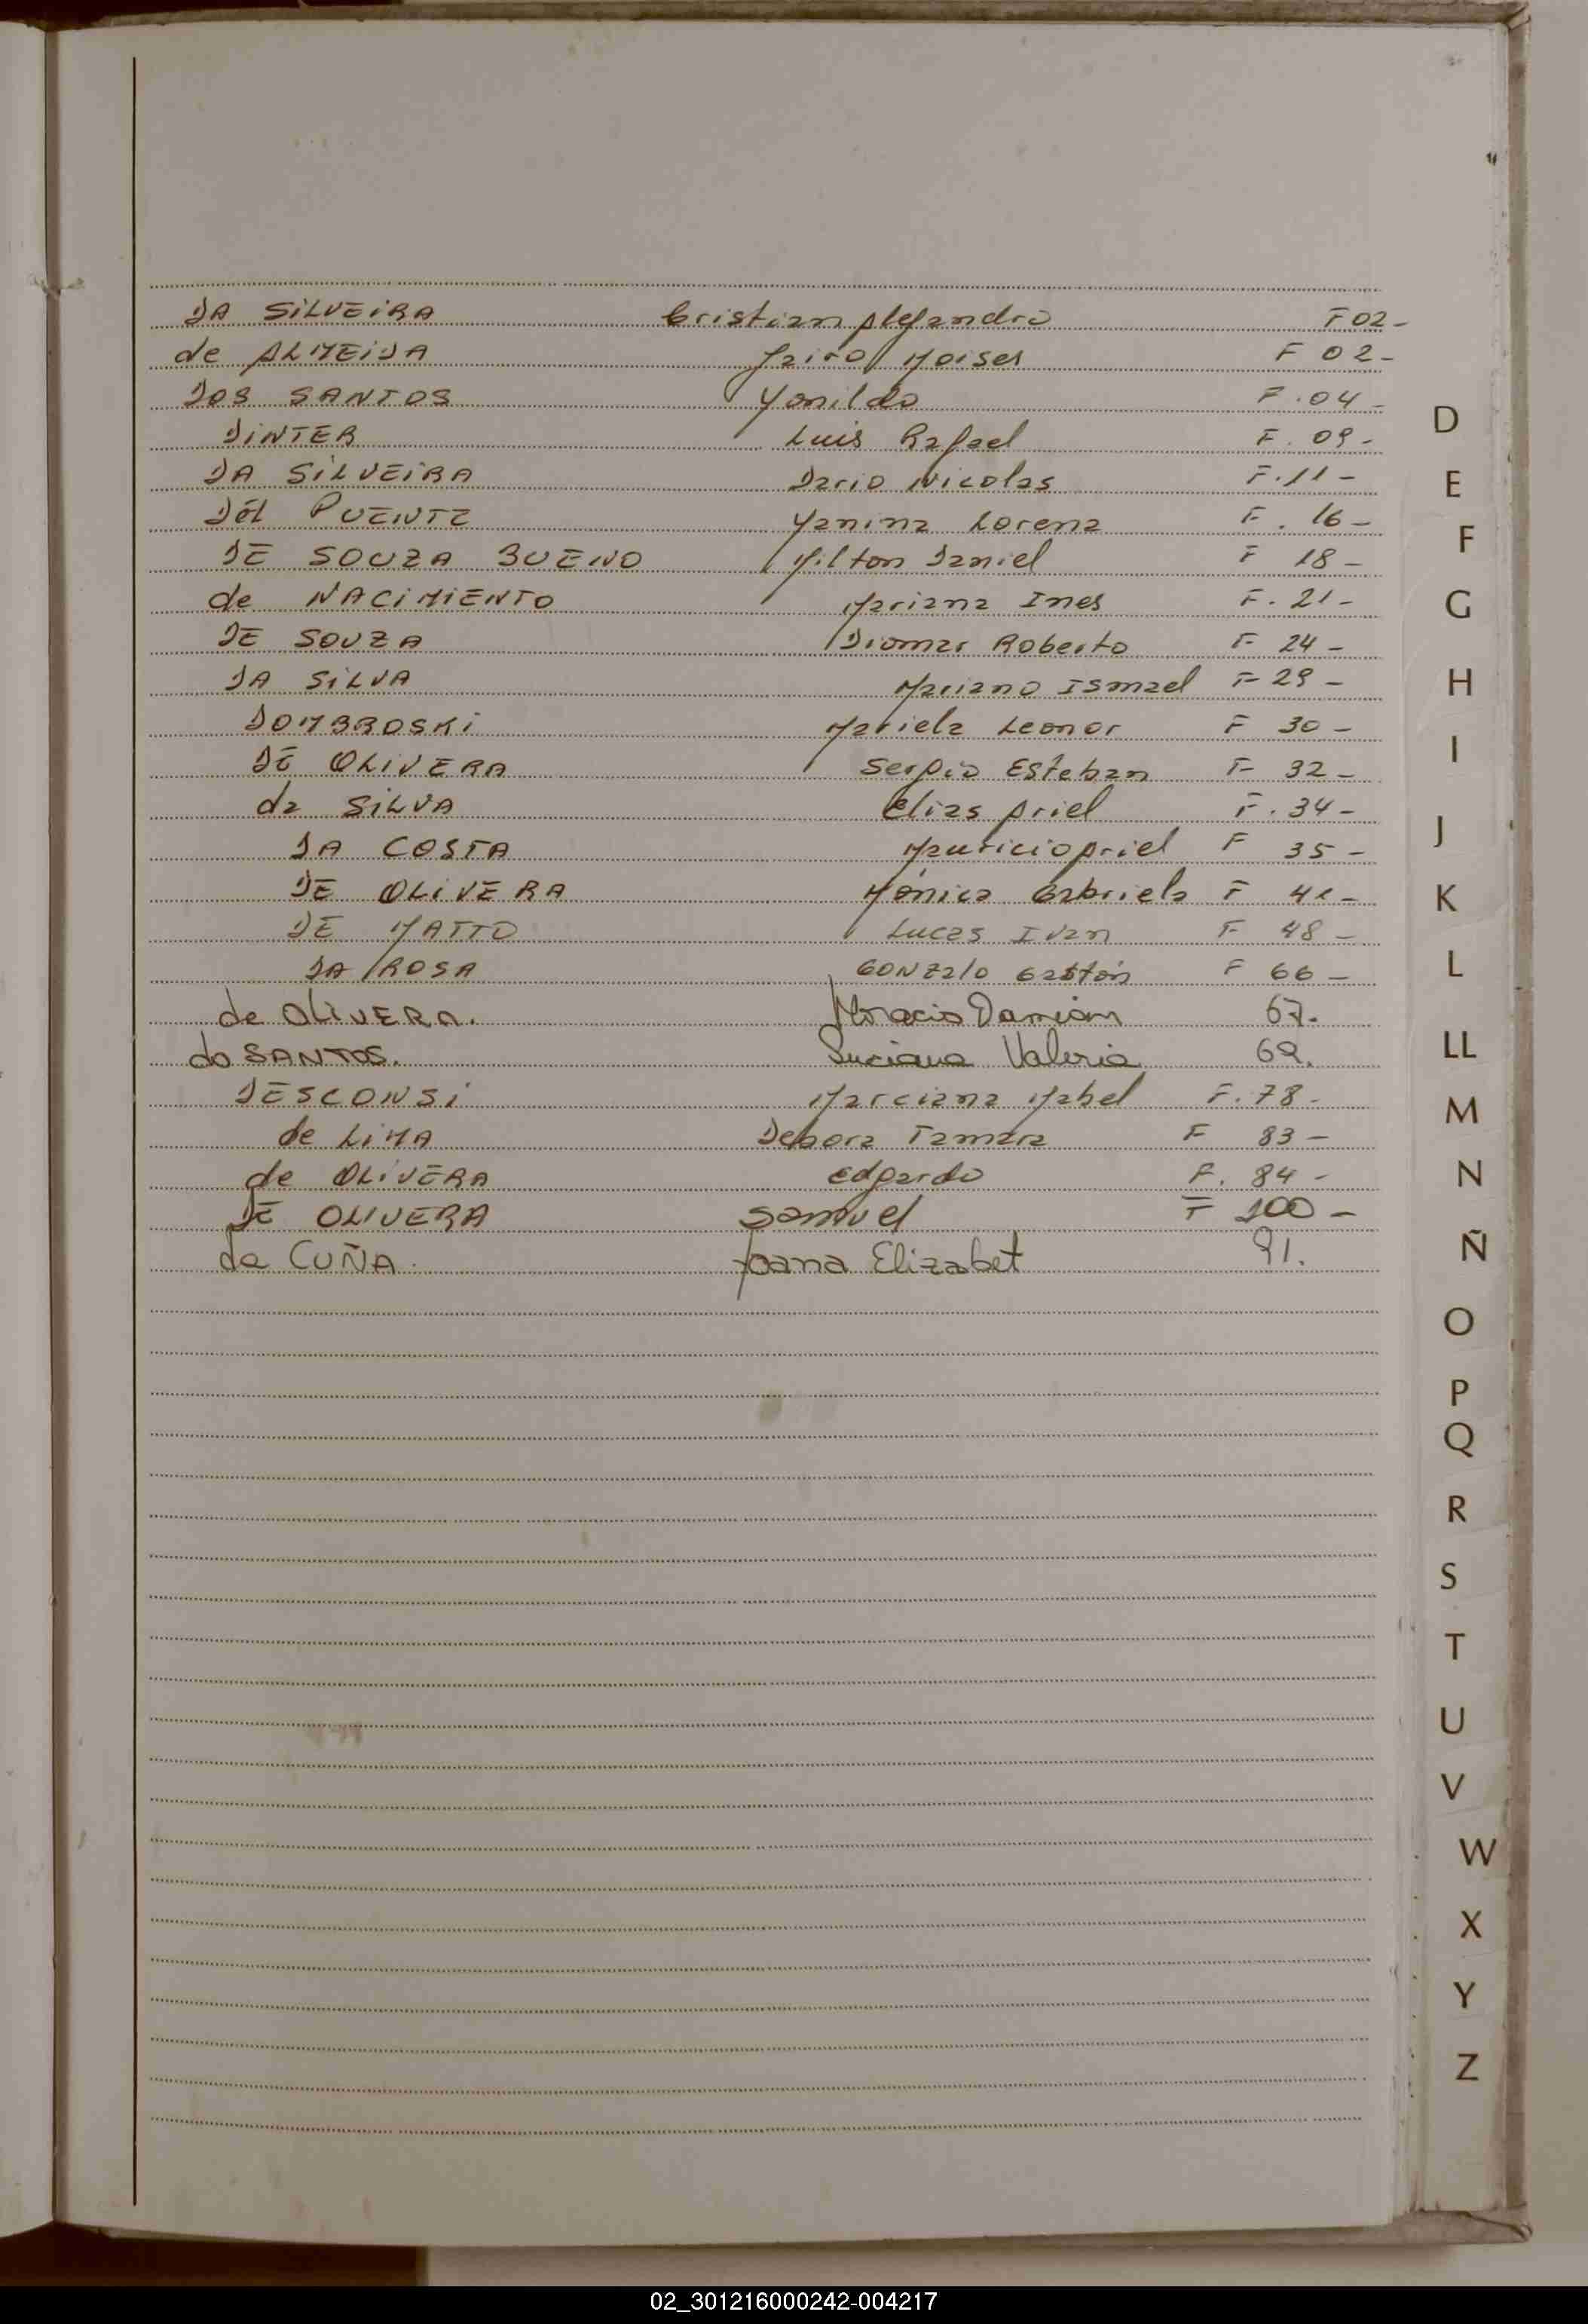 DA SILVEIRA Cristian Alejandro F 02-
de ALMEIDA Jairo Moises F 02-
DOS SANTOS Yonildo F. 04-
DINTER Luis Rafael F. 09-
DA SILVEIRA Dario Nicolas F. 11-
Dél PUENTE Yanina Lorena F. 16-
DE SOUZA BUENO Milton Daniel F 18-
de NACIMIENTO Mariana Ines F. 21-
DE SOUZA Diomar Roberto F 24-
DA SILVA Mariano Ismael F 29-
DOMBROSKI Mariela Leonor F 30-
DE OLIVERA Sergio Esteban F 32-
da SILVA Elias Ariel F. 34-
DA COSTA Mauricio Ariel F 35-
DE OLIVERA Mónica Gabriela F
DE MATTO Lucas Ivan F 48-
DA ROSA GONZalo Gastón F 66-
de OLIVERA. Horacio Damián 67.
do SANTOS. Luciana Valeria 69.
DESCONSI Marciana Mabel F. 78-
de LIMA Debora Tamara F 83-
de OLIVERA edgardo F. 84-
DE OLIVERA Samuel F 100-
da CUÑA. Joana Elizabet 91.
D
E
F
G
H
I
J
K
L
LL
M
N
Ñ
O
P
Q
R
S
T
U
V
W
X
Y
Z
02_301216000242-004217